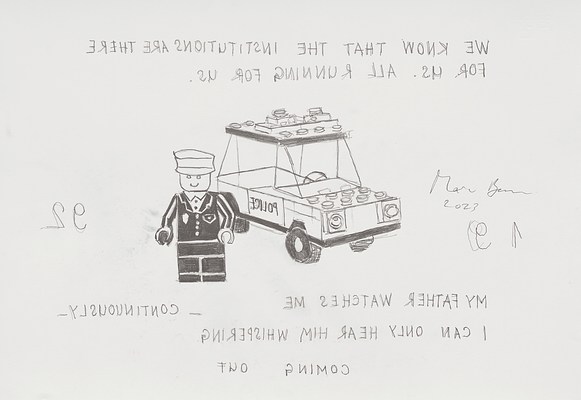 WE KNOW THAT THE INSTITUTIONS ARE THERE
FOR US. ALL RUNNING FOR US.
POLICE
2023
1 9
92
MY FATHER WATCHES ME
_ CONTINUOUSLY _
I CAN ONLY HEAR HIM WHISPERING
COMING OUT